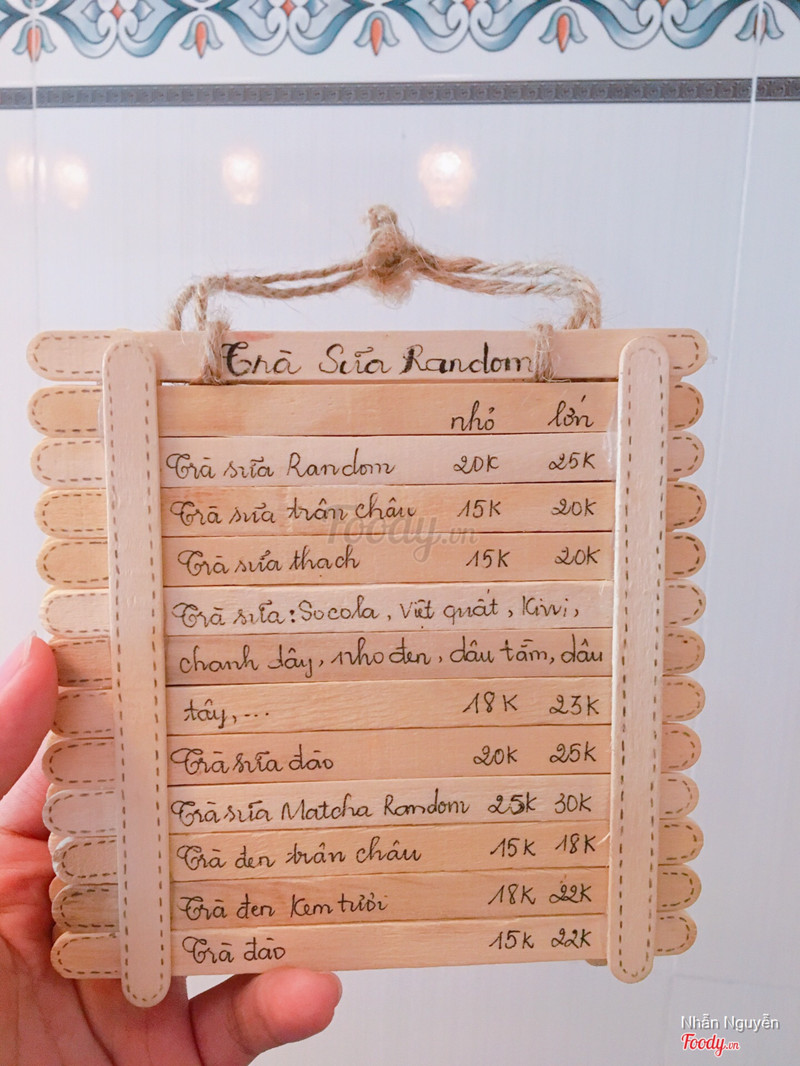 Trà Sữa Random
nhỏ lớn
Trà sữa Random 20K 25K
Trà sữa trân châu 15K 20K
Trà sữa thạch 15K 20K
Trà sữa: Socola, Việt quất, Kiwi,
chanh dây, nho đen, dâu tằm, dâu
tây,... 18K 23K
Trà sữa đào 20K 25K
Trà sữa Matcha Random 25K 30K
Trà đen trân châu 15K 18K
Trà đen Kem tươi 18K 22K
Trà đào 15K 22K
Foody.vn
Nhẫn Nguyễn
Foody.vn